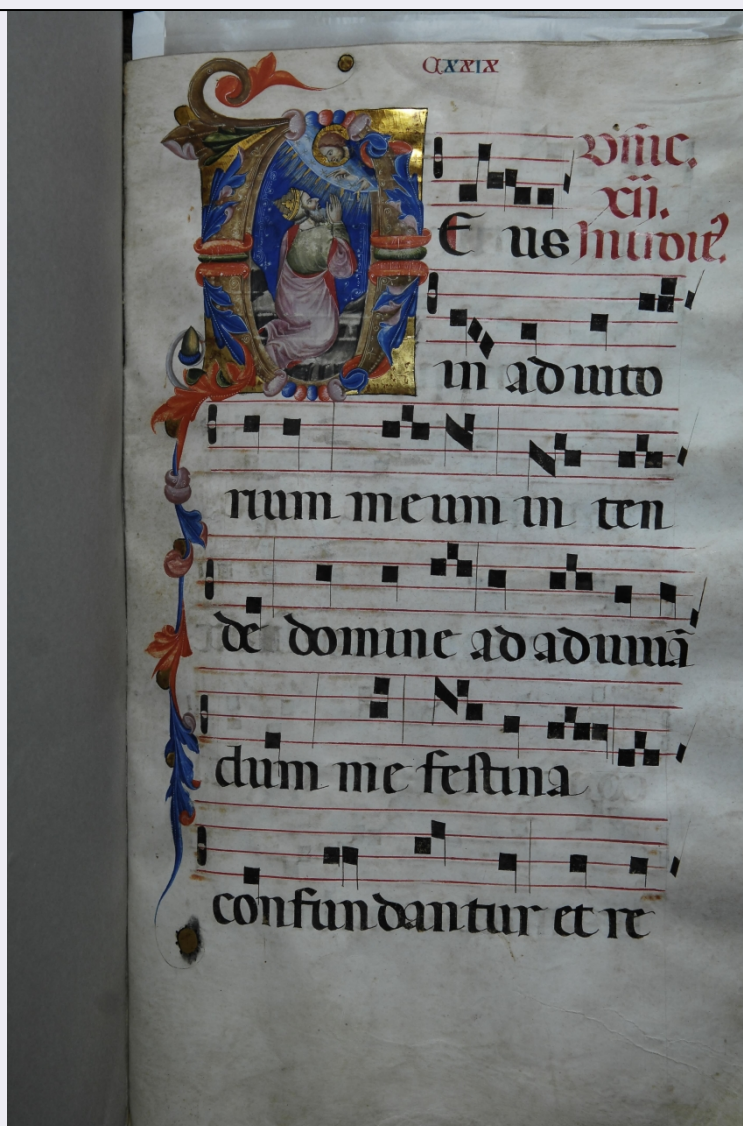 CXXIX
Dnic.
xii.
D E us Introit᷒
in adiuto
rium meum in ten
de domine ad adiuuā
dum me festina
confundantur et re